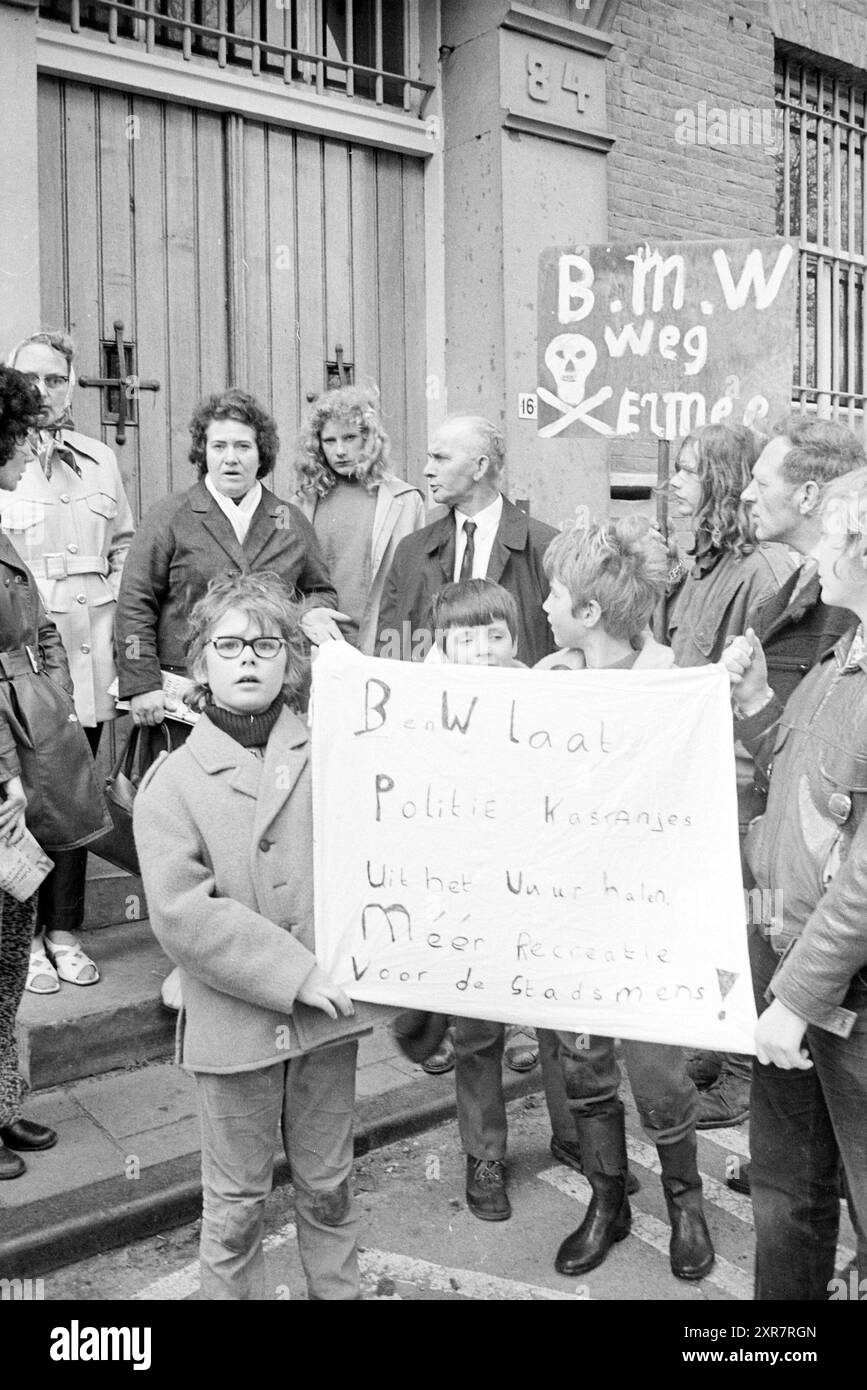 84
B.M.W
weg
ERMEE
16
B en W laat
Politie Kastanjes
Uit het Vuur halen,
Méér Recreatie
Voor de Stadsmens!
alamy
Image ID: 2XR7RGN
www.alamy.com